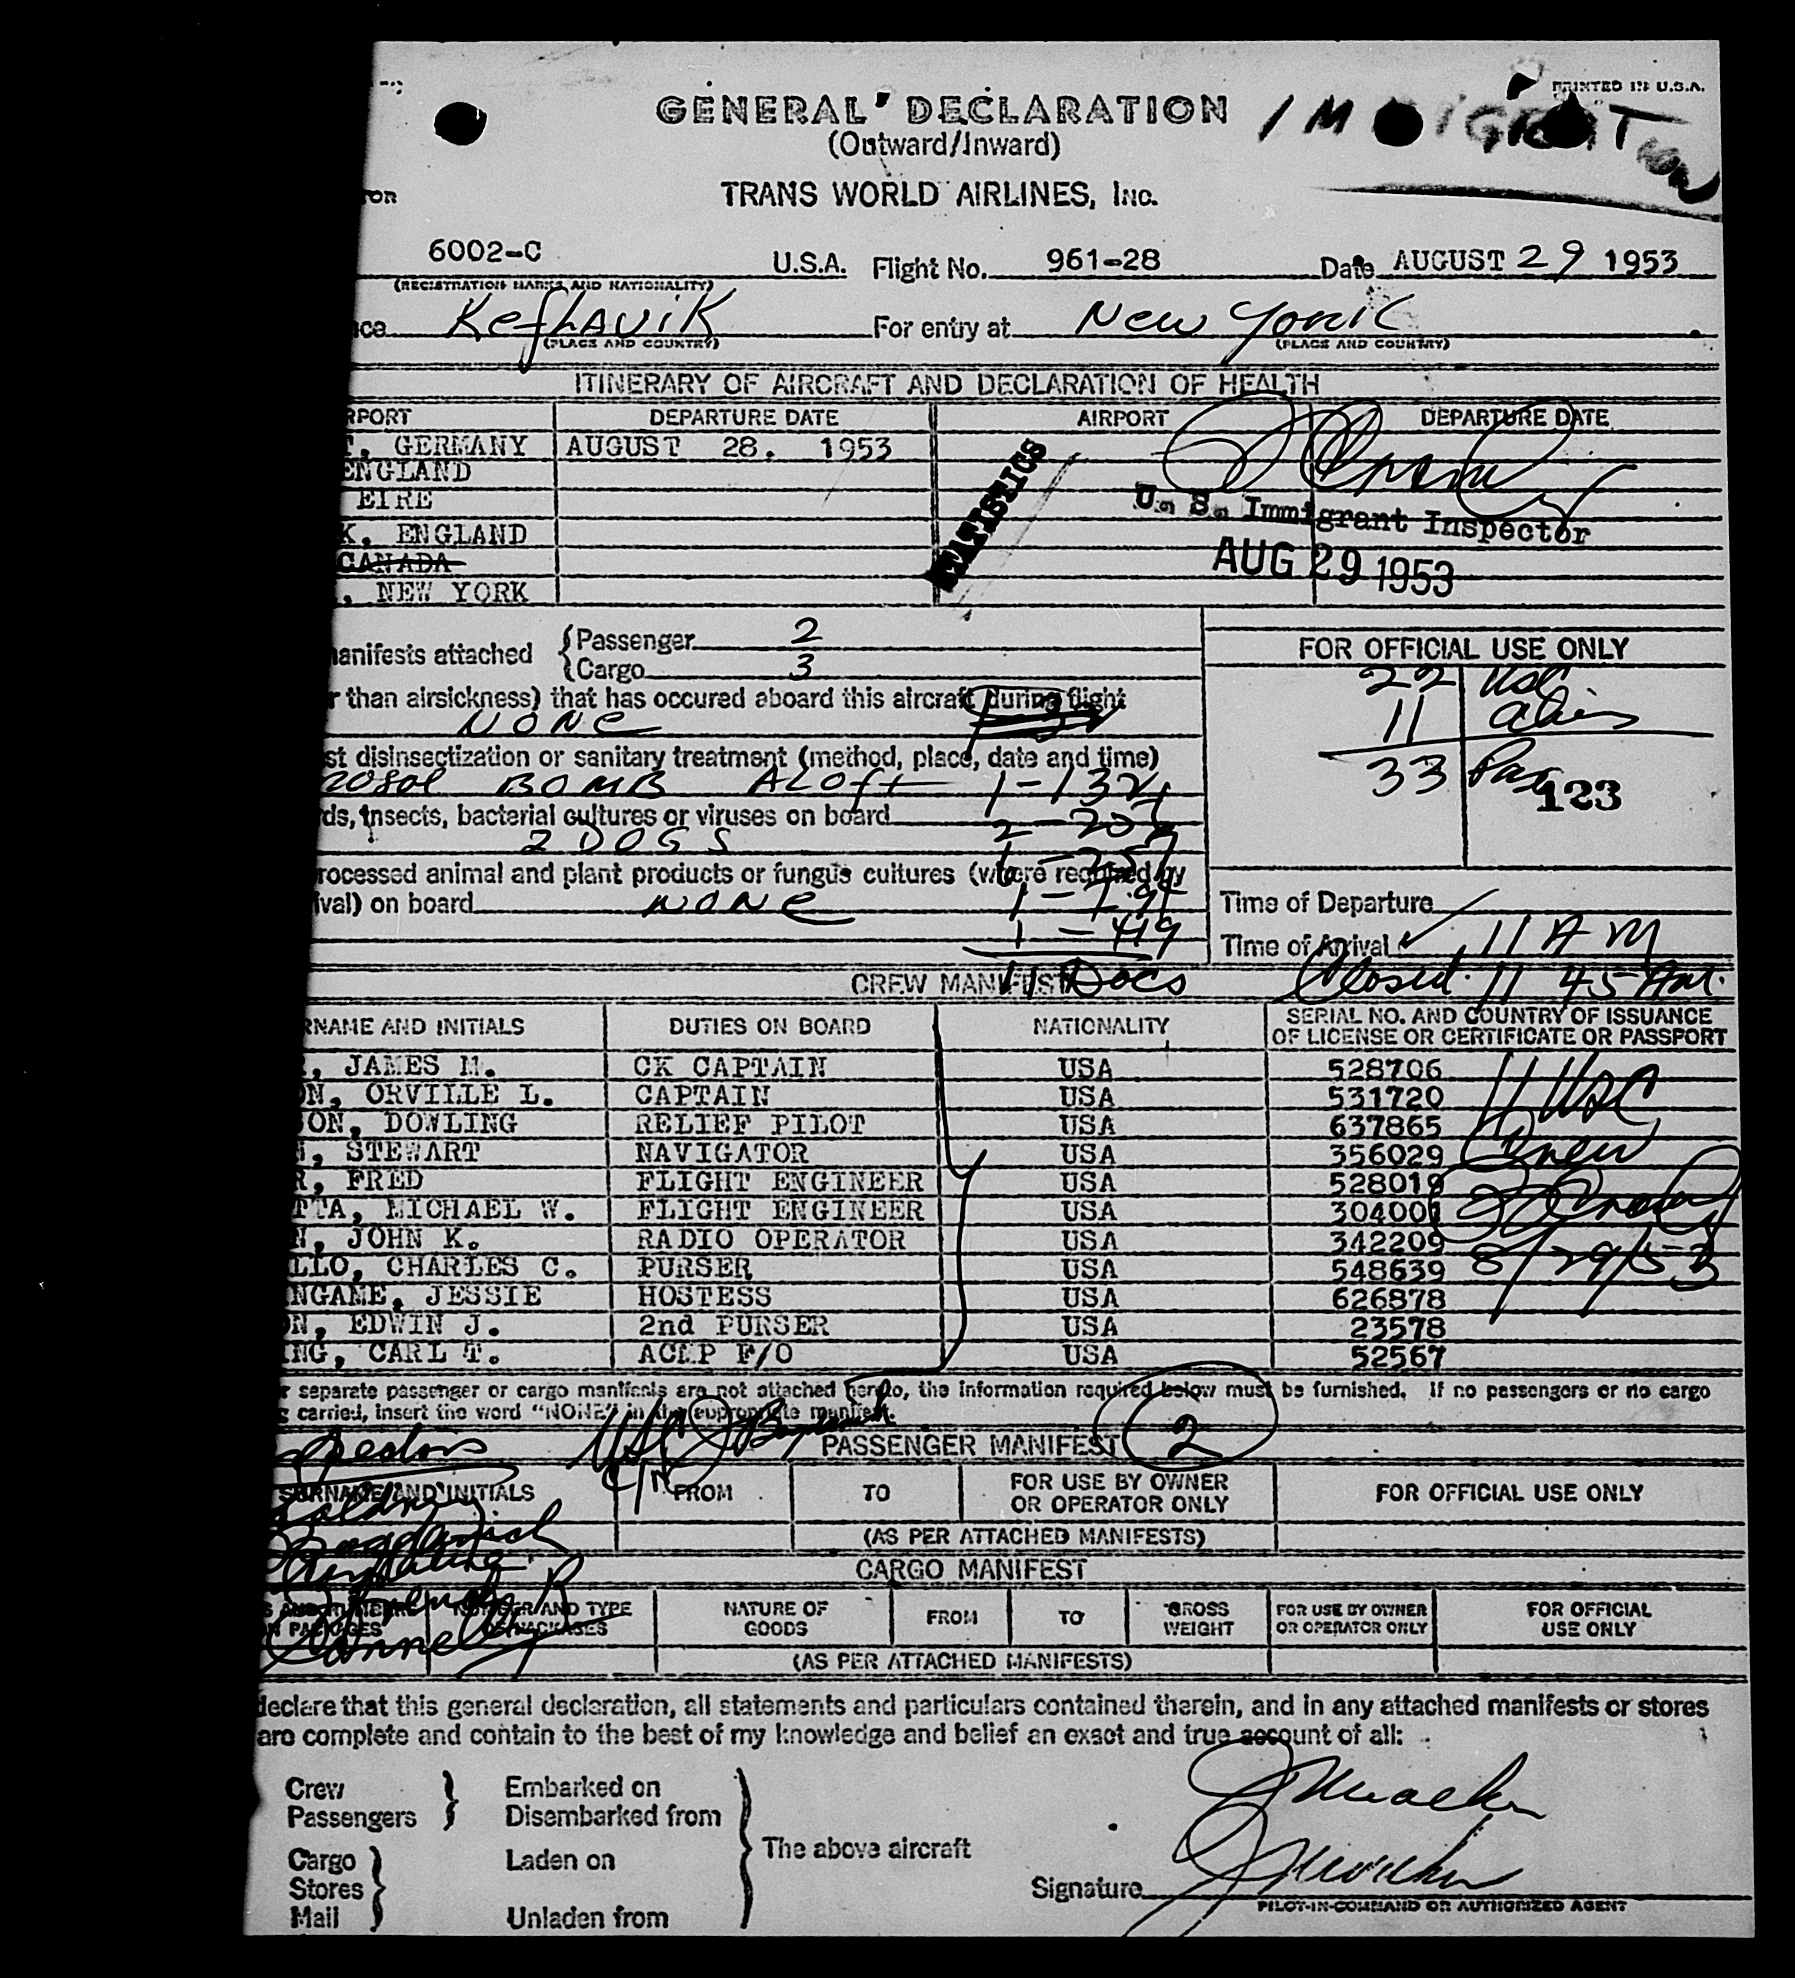 PRINTED IN U.S.A.
GENERAL DECLARATION
IMMIGRATION
(Outward/Inward)
TRANS WORLD AIRLINES, Inc.
6002-C U.S.A. Flight No. 961-28 Date AUGUST 29 1953
(REGISTRATION MARKS AND NATIONALITY)
Keflavik For entry at New York
(PLACE AND COUNTRY) (PLACE AND COUNTRY)
ITINERARY OF AIRCRAFT AND DECLARATION OF HEALTH
RPORT DEPARTURE DATE AIRPORT DEPARTURE DATE
T, GERMANY AUGUST 28. 1953
ENGLAND
EIRE
STATISTICS
U. S. Immigrant Inspector
K, ENGLAND
CANADA
AUG 29 1953
, NEW YORK
manifests attached {Passenger 2
{Cargo 3
FOR OFFICIAL USE ONLY
22 USC
11 Alien
33 Pax
123
r than airsickness) that has occured aboard this aircraft during flight
NONE
st disinsectization or sanitary treatment (method, place, date and time)
rosol BOMB ALOft 1-132
ds, insects, bacterial cultures or viruses on board
2 DOGS
rocessed animal and plant products or fungus cultures (where required by
ival) on board NONE
1 - 419
11 Docs
Time of Departure
Time of Arrival 11 AM
Closed 11 45 AM.
CREW MANIFEST
RNAME AND INITIALS DUTIES ON BOARD NATIONALITY SERIAL NO. AND COUNTRY OF ISSUANCE
OF LICENSE OR CERTIFICATE OR PASSPORT
, JAMES M. CK CAPTAIN USA 528706
ON, ORVILLE L. CAPTAIN USA 531720 11 USC
ON, DOWLING RELIEF PILOT USA 637865
, STEWART NAVIGATOR USA 356029 Crew
R, FRED FLIGHT ENGINEER USA 528019
TTA, MICHAEL W. FLIGHT ENGINEER USA 304001
N, JOHN K. RADIO OPERATOR USA 342209
LLO, CHARLES C. PURSER USA 548639 8/29/53
NGAME, JESSIE HOSTESS USA 626878
ON, EDWIN J. 2nd PURSER USA 23578
ING, CARL T. ACMP F/O USA 52567
r separate passenger or cargo manifests are not attached hereto, the information required below must be furnished. If no passengers or no cargo
g carried, insert the word "NONE" in the appropriate manifest.
PASSENGER MANIFEST 2
SURNAME AND INITIALS FROM TO FOR USE BY OWNER
OR OPERATOR ONLY FOR OFFICIAL USE ONLY
(AS PER ATTACHED MANIFESTS)
CARGO MANIFEST
NUMBER AND TYPE
OF PACKAGES NATURE OF
GOODS FROM TO GROSS
WEIGHT FOR USE BY OWNER
OR OPERATOR ONLY FOR OFFICIAL
USE ONLY
(AS PER ATTACHED MANIFESTS)
declare that this general declaration, all statements and particulars contained therein, and in any attached manifests or stores
are complete and contain to the best of my knowledge and belief an exact and true account of all:
Crew Embarked on
Passengers Disembarked from
The above aircraft
Cargo Laden on
Stores Signature
Mail Unladen from
PILOT-IN-COMMAND OR AUTHORIZED AGENT